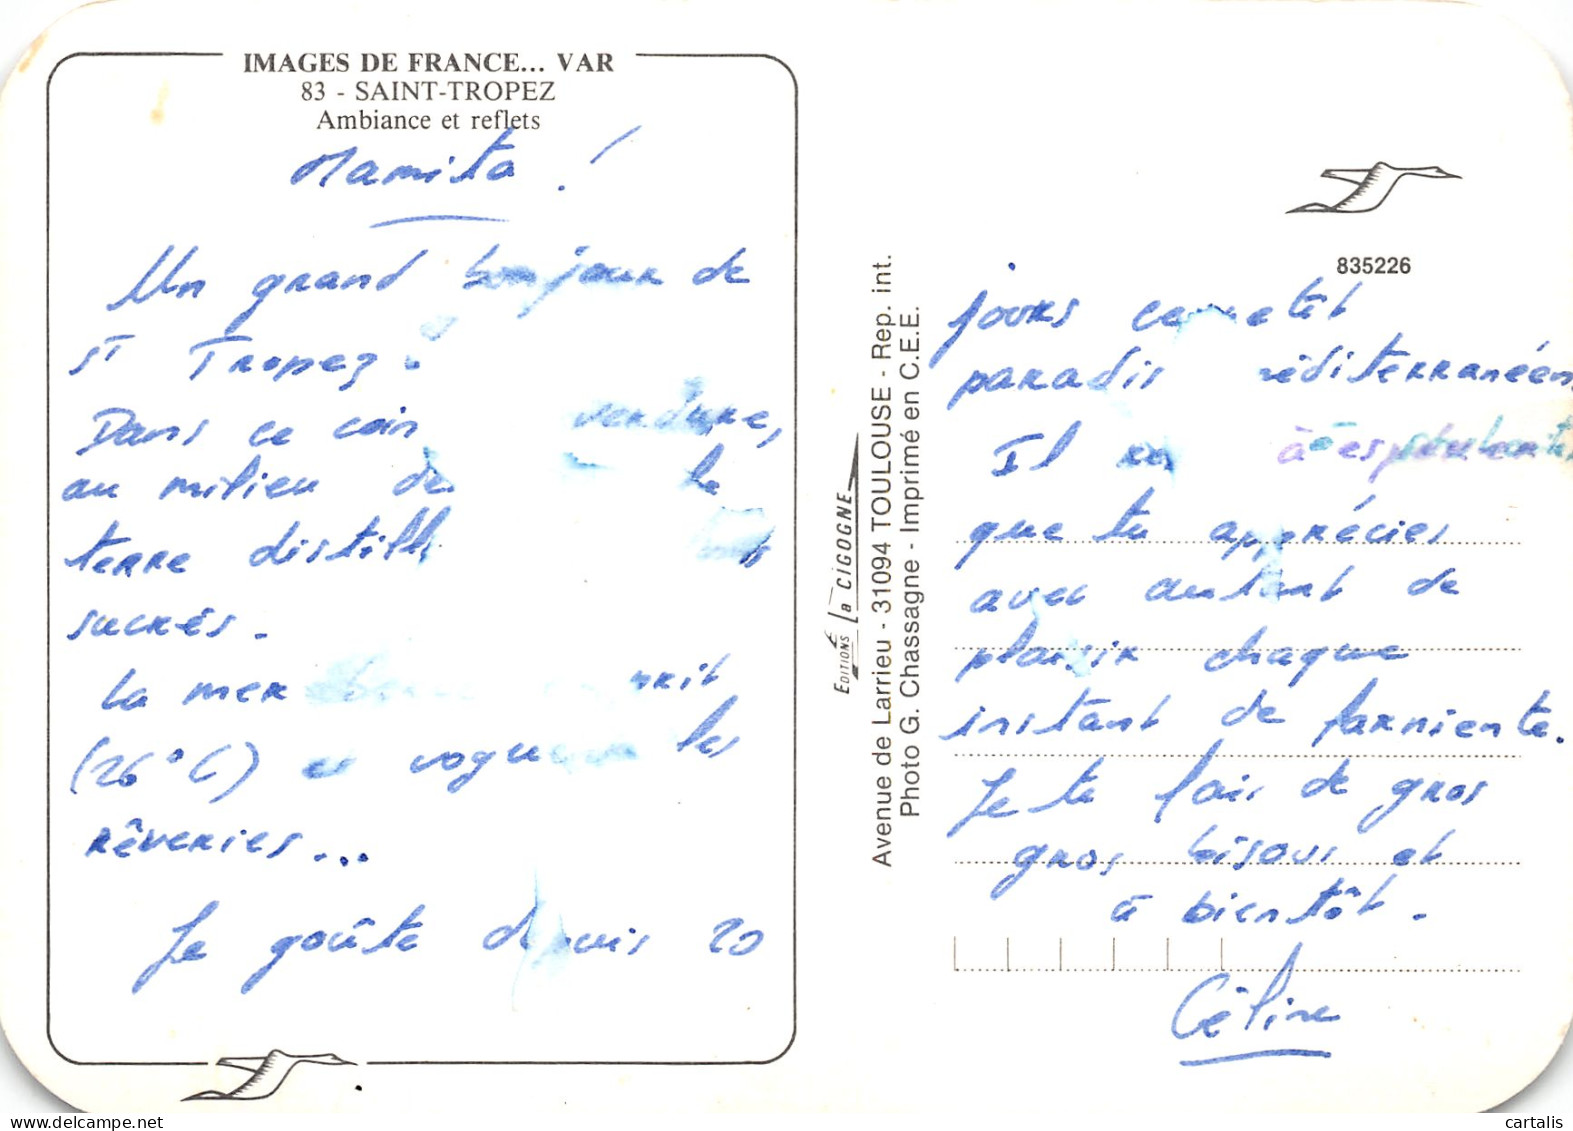 IMAGES DE FRANCE... VAR
83 - SAINT-TROPEZ
Ambiance et reflets
Mamita !
Un grand bonjour de
St Tropez.
Dans ce coin verdure,
au milieu de la
terre distille
sucrés.
La mer
(26°C) et les
rêveries...
Je goûte depuis 20
Editions La CIGOGNE
Avenue de Larrieu - 31094 TOULOUSE - Rep. int.
Photo G. Chassagne - Imprimé en C.E.E.
835226
jours cet
paradis méditerranéen.
Il
que tu apprécies
avec autant de
plaisir chaque
instant de farniente.
Je te fais de gros
gros bisous et
à bientôt.
Céline
delcampe.net
cartalis